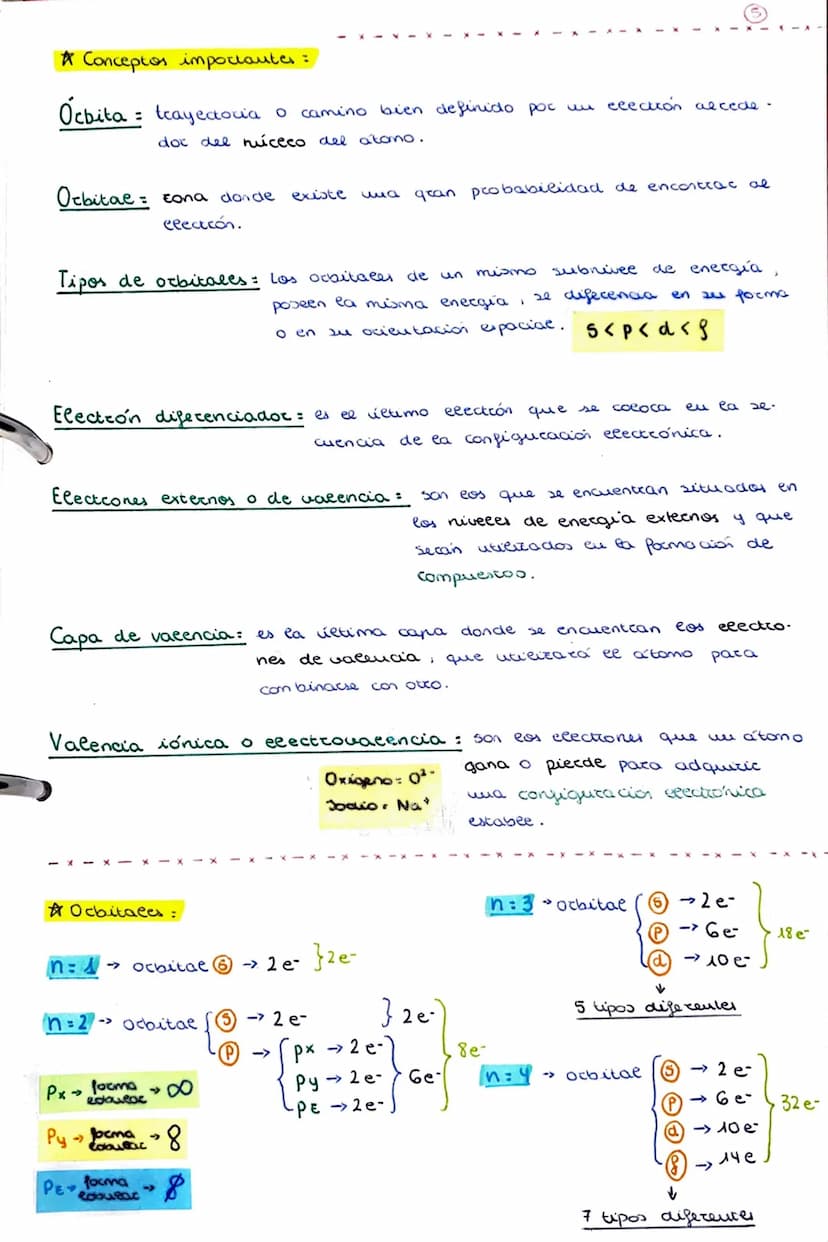 5
☆ Conceptos importantes:
Órbita = trayectoria o camino bien definido por un electrón alrede-
dor del núcleo del átomo.
Orbital = zona donde existe una gran probabilidad de encontrar al
electrón.
Tipos de orbitales: Los orbitales de un mismo subnivel de energía,
poseen la misma energía, se diferencia en su forma
o en su orientación espacial. S < p < d < f
Electrón diferenciador: es el último electrón que se coloca en la se-
cuencia de la configuración electrónica.
Electrones externos o de valencia: son los que se encuentran situados en
los niveles de energía externos y que
serán utilizados en la formación de
compuestos.
Capa de valencia: es la última capa donde se encuentran los electro-
nes de valencia, que utilizará el átomo para
combinarse con otro.
Valencia iónica o electrovalencia: son los electrones que un átomo
gana o pierde para adquirir
una configuración electrónica
estable.
Oxígeno = O²⁻
Sodio = Na⁺
☆ Orbitales:
n=1 → orbital s → 2e⁻ } 2e⁻
n=2 → orbital { s → 2e⁻ } 2e⁻
p → { px → 2e⁻
py → 2e⁻ } 6e⁻
pz → 2e⁻
8e⁻
Px → forma lobular → ∞
Py → forma lobular → 8
Pz → forma lobular → 8
n=3 → orbital { s → 2e⁻
p → 6e⁻ } 18e⁻
d → 10e⁻
↓
5 tipos diferentes
n=4 → orbital { s → 2e⁻
p → 6e⁻ } 32e⁻
d → 10e⁻
f → 14e
↓
7 tipos diferentes